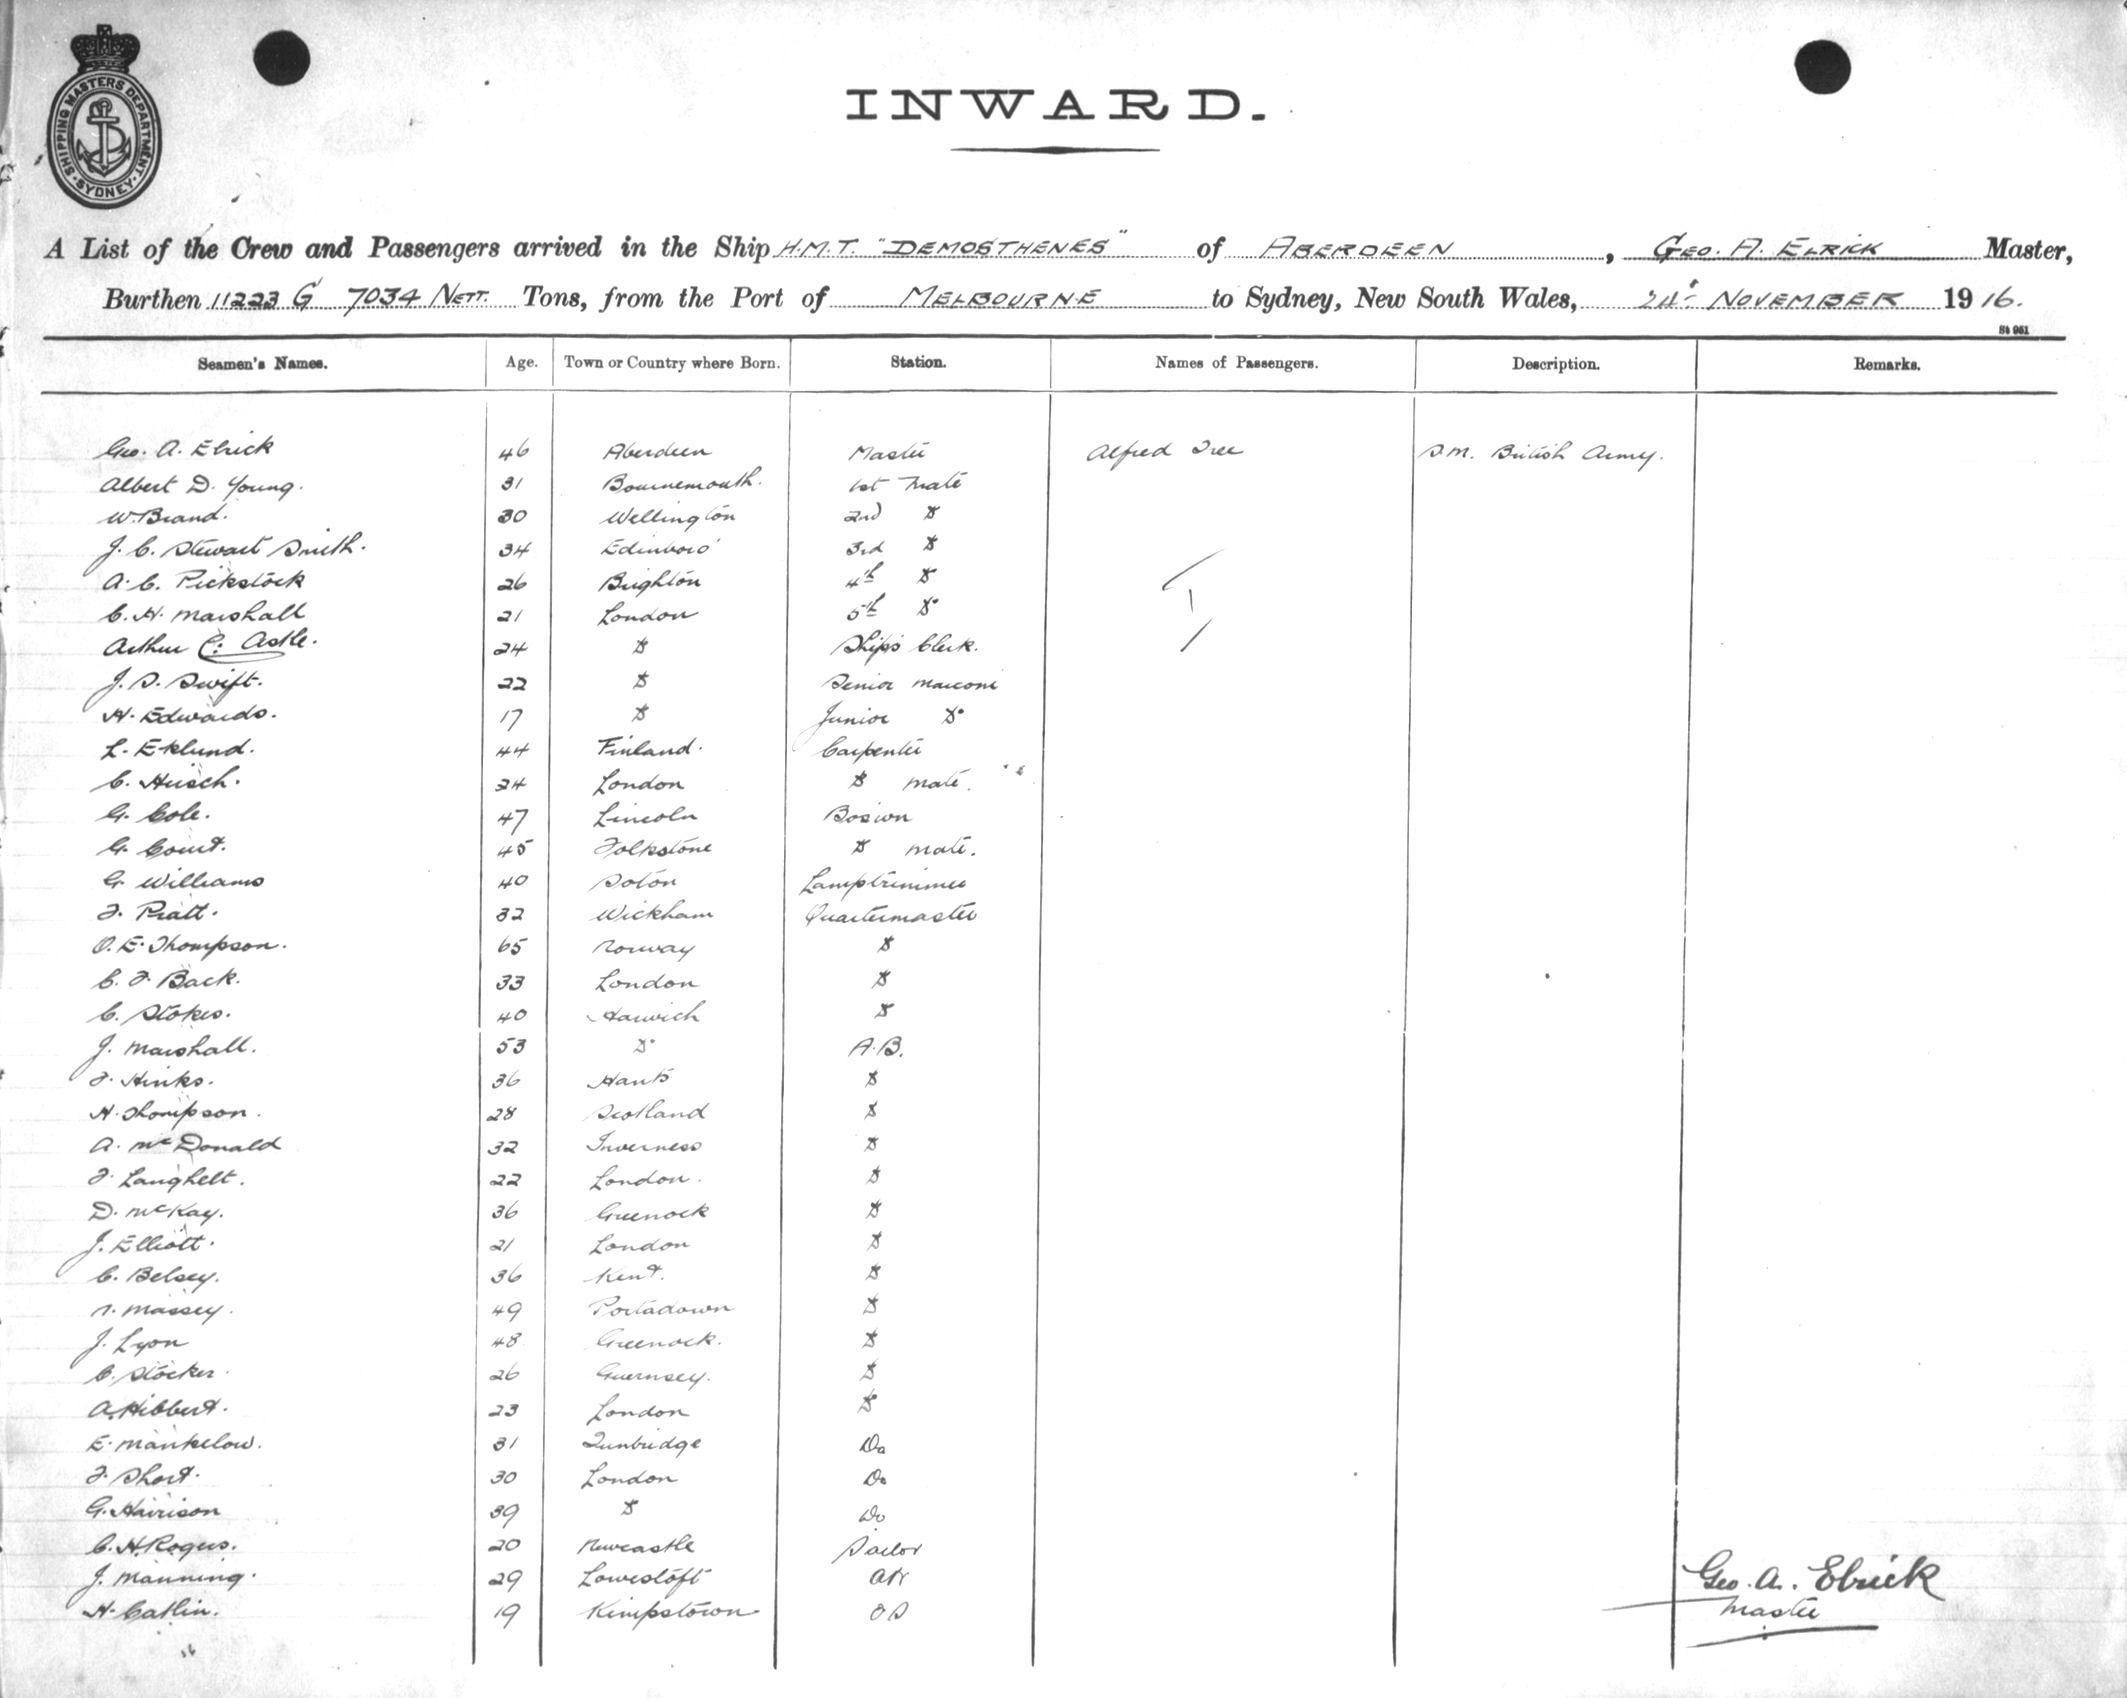 SHIPPING MASTERS DEPARTMENT · SYDNEY ·
INWARD.
A List of the Crew and Passengers arrived in the Ship H.M.T. "DEMOSTHENES" of ABERDEEN, GEO. A. ELRICK Master,
Burthen 11223 G 7034 NETT. Tons, from the Port of MELBOURNE to Sydney, New South Wales, 24th NOVEMBER 1916.
St 961
Seamen's Names. Age. Town or Country where Born. Station. Names of Passengers. Description. Remarks.
Geo. A. Elrick 46 Aberdeen Master Alfred Tree S.M. British Army.
Albert D. Young. 31 Bournemouth. 1st Mate
W. Brand. 30 Wellington 2nd Do
J. C. Stewart Smith. 34 Edinboro' 3rd Do
A. C. Pickstock 26 Brighton 4th Do
C. H. Marshall 21 London 5th Do
Arthur C. Astle. 24 Do Ship's Clerk.
J. S. Swift. 22 Do Senior Marconi
H. Edwards. 17 Do Junior Do
L. Eklund. 44 Finland. Carpenter
C. Hirsch. 24 London Do mate.
G. Cole. 47 Lincoln Bosiwn
G. Court. 45 Folkstone Do mate.
G. Williams 40 Soton Lamptrimmer
F. Pratt. 32 Wickham Quartermaster
O. E. Thompson. 65 Norway Do
C. F. Back. 33 London Do
C. Stokes. 40 Harwich Do
J. Marshall. 53 Do A.B.
F. Hinks. 36 Hants Do
H. Thompson. 28 Scotland Do
A. McDonald 32 Inverness Do
F. Langhelt. 22 London. Do
D. McKay. 36 Greenock Do
J. Elliott. 21 London Do
C. Belsey. 36 Kent. Do
Massey. 49 Portadown Do
J. Lyon 48 Greenock. Do
C. Stocker. 26 Guernsey. Do
A. Hibbert. 23 London Do
E. Mankelow. 31 Tunbridge Do
F. Short. 30 London Do
G. Harrison 39 Do Do
C. H. Rogers. 20 Newcastle Sailor
J. Manning. 29 Lowestoft
H. Catlin. 19 Kimpstown OS
Geo. A. Elrick
Master